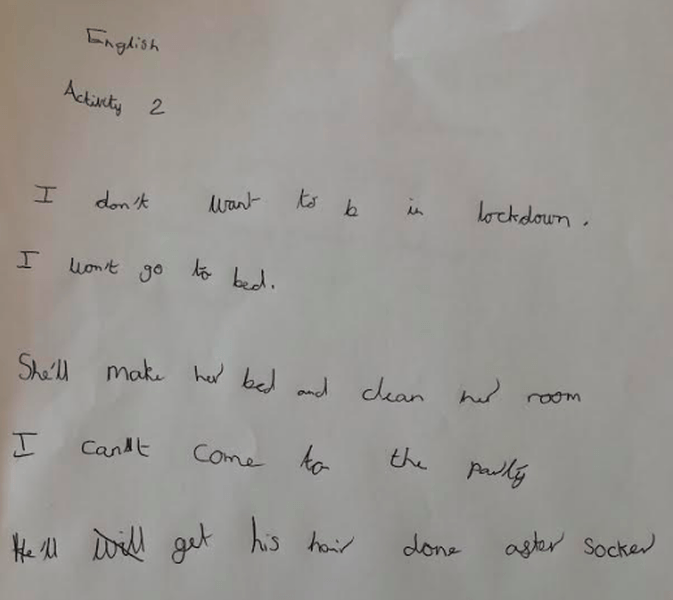 English
Activity 2
I don't want to b in lockdown.
I won't go to bed.
She'll make her bed and clean her room
I can't come to the party
He'll will get his hair done aster socker